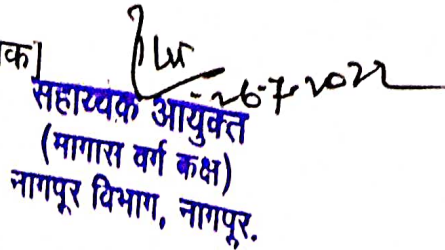 क]
26-7-2022
सहाय्यक आयुक्त
(मागास वर्ग कक्ष)
नागपूर विभाग, नागपूर.